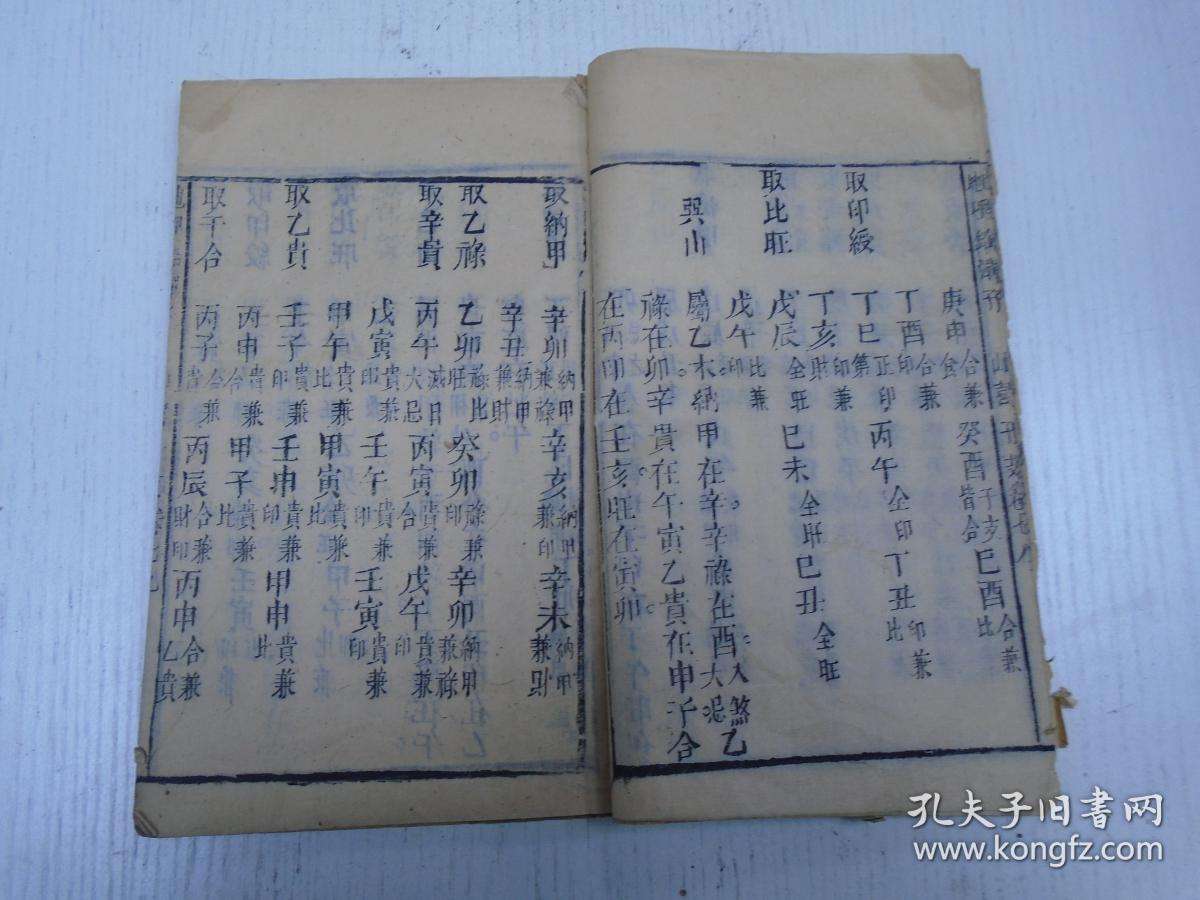 庚申 合兼食 癸酉 干支皆合 巳酉 合兼比
丁酉 合兼印
取印綬 丁巳 正印第 丙午 仝印 丁丑 印兼比
丁亥 印兼財
取比旺 戊辰 仝旺 巳未 仝旺 巳丑 仝旺
戊午 比兼印
巽山 屬乙木納甲在辛辛祿在酉大忌入煞乙
祿在卯辛貴在午寅乙貴在申子合
在丙印在壬亥旺在寅卯
取納甲 辛卯 納甲兼祿 辛亥 納甲兼印 辛未 納甲兼財
辛丑 納甲兼財
取乙祿 乙卯 祿比旺 癸卯 祿兼印 辛卯 納甲兼祿
取辛貴 丙午 滅日大忌 丙寅 貴兼合 戊午 貴兼印
戊寅 貴兼印 壬午 貴兼印 壬寅 貴兼印
甲午 貴兼比 甲寅 貴兼比
取乙貴 壬子 貴兼印 壬申 貴兼印 甲申 貴兼比
丙申 貴兼合 甲子 貴兼比
取干合 丙子 合兼貴 丙辰 合兼財印 丙申 合兼乙貴
孔夫子旧书网
www.kongfz.com